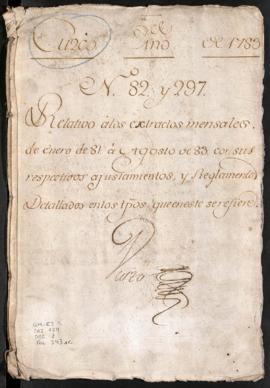 Cuzco Del Año de 1783
N.º 82 y 297.
Relativo álos extractos mensales,
de enero de 81 á Agosto de 83 con sus
respectivos ajustamientos, y Reglamentos
Detallados en los tpõs. que en este se refiere.